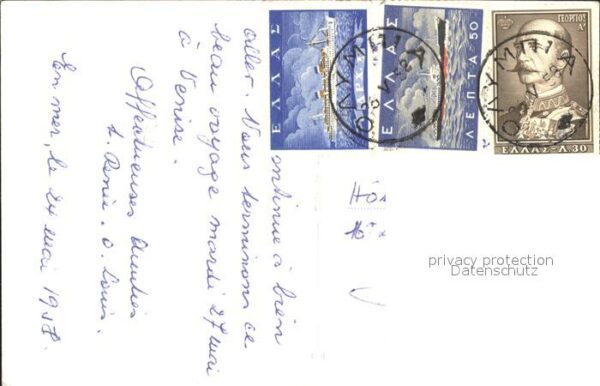 ontinue à bien
aller. Nous terminons ce
beau voyage mardi 27 mai
à Venise.
Affectueuses
En mer, le 24 mai 1958.
ΕΛΛΑΣ
ΕΛΛΑΣ
ΛΕΠΤΑ 50
ΓΕΩΡΓΙΟΣ
Α'
ΕΛΛΑΣ Λ.30
ΟΛΥΜΠΙΑ
ΟΛΥΜΠΙΑ
privacy protection
Datenschutz